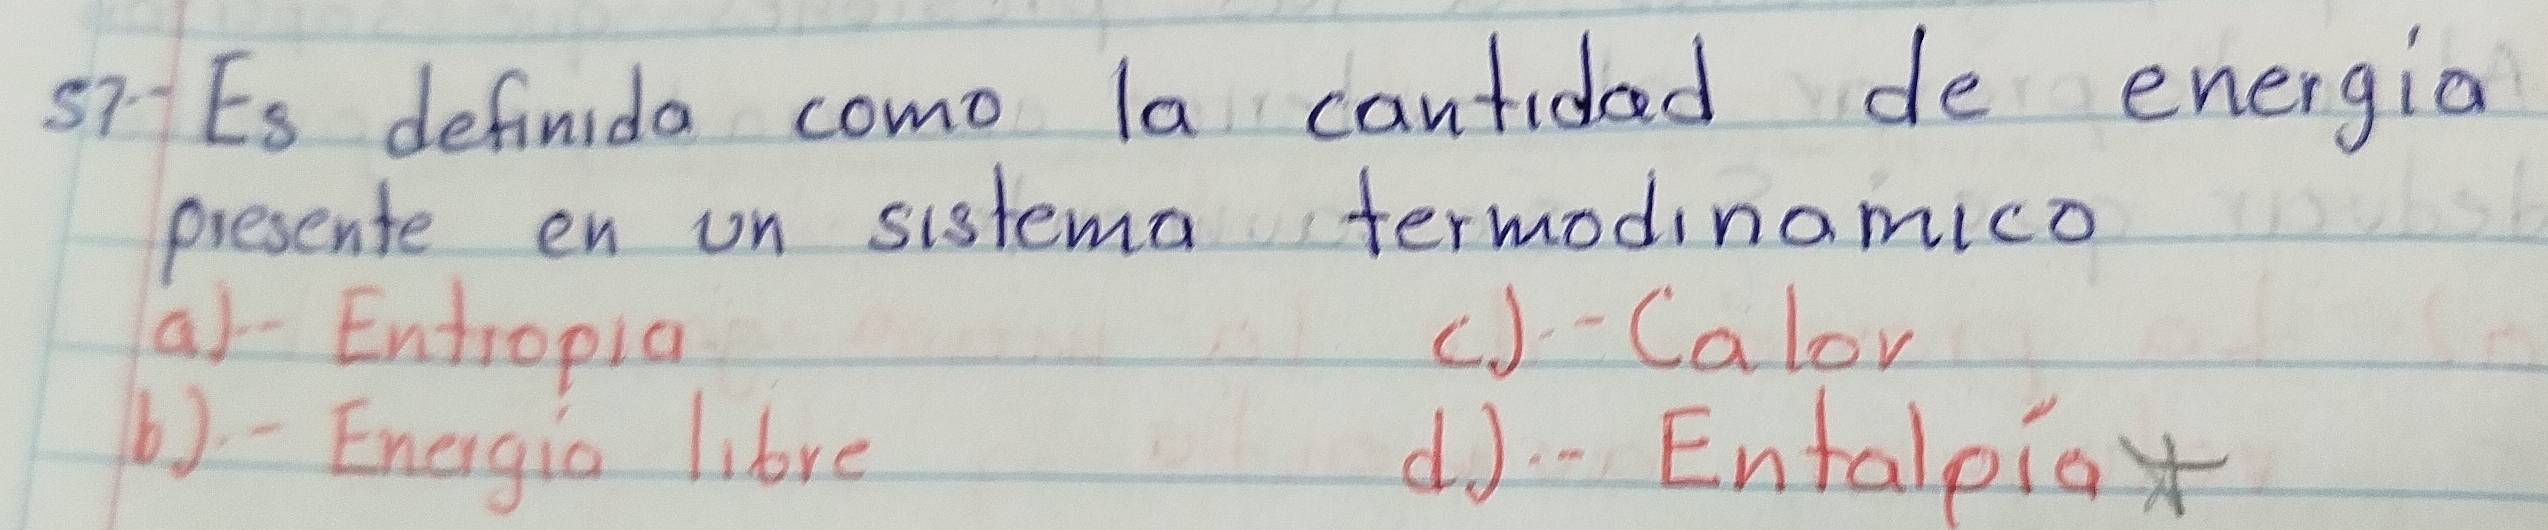 57-- Es definida como la cantidad de energia
presente en un sistema termodinamico
a)-- Entropia c).-- Calor
b).-- Energia libre d.).-- Entalpía *